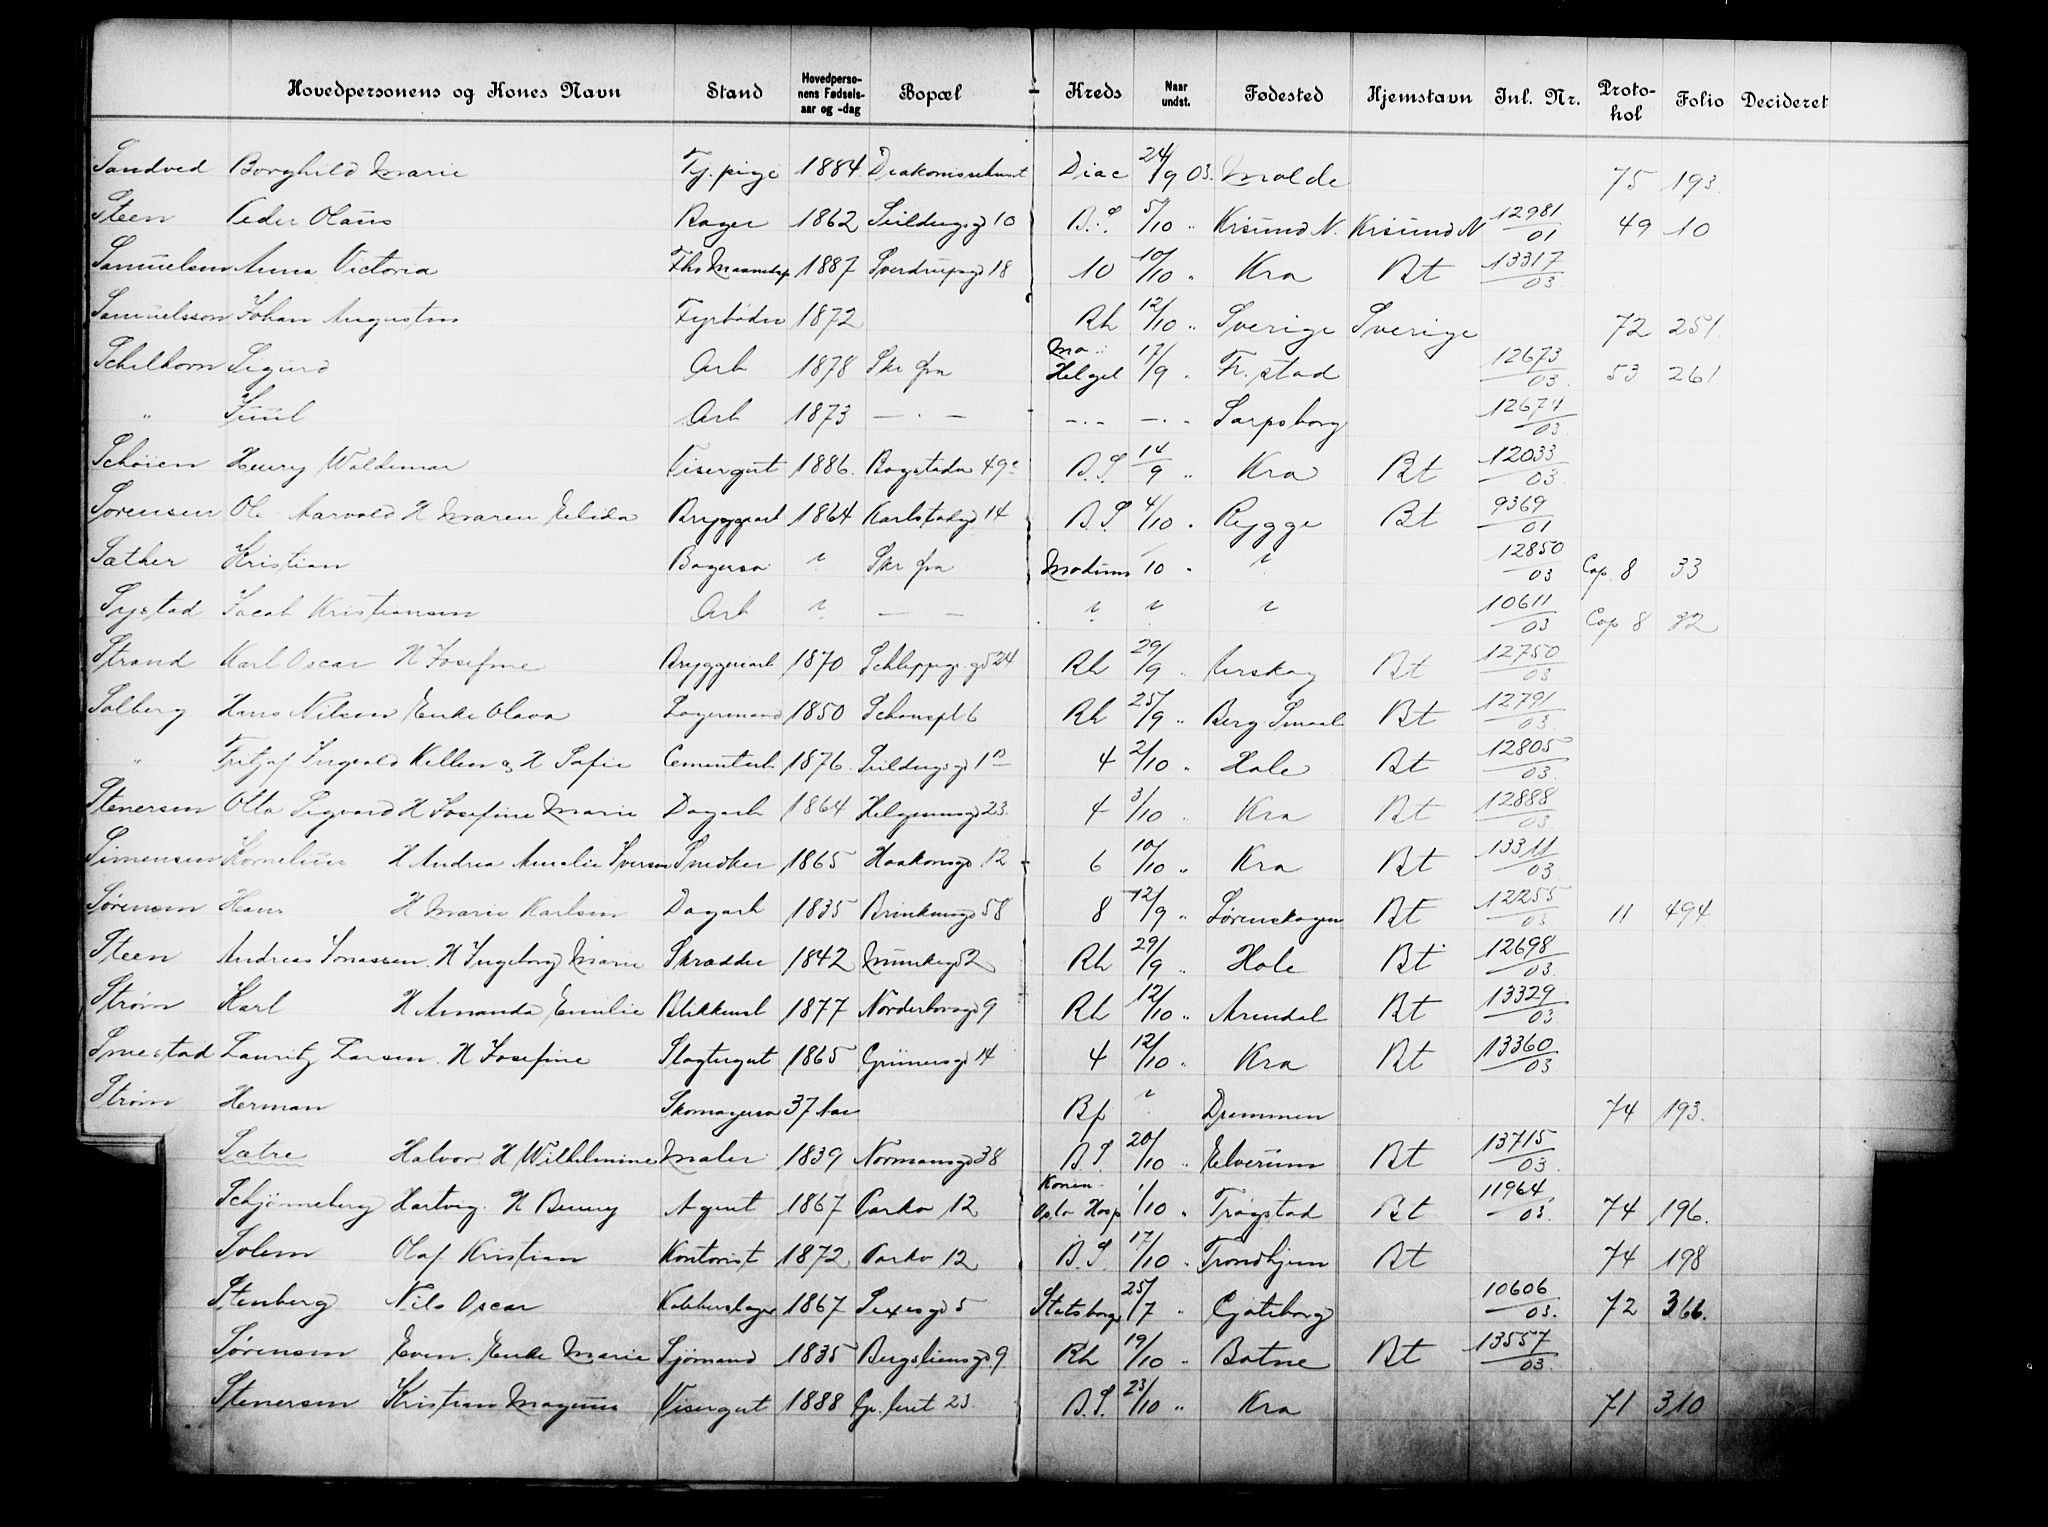 Hovedpersonens og Kones Navn Stand Hovedperso-nens Fødsels-aar og -dag Bopæl Kreds Naar undst. Fødested Hjemstavn Jnl. Nr. Proto-kol Folio Decideret
Sandved Borghild Marie Tj. pige 1884 Diakonissehuset Diac 24/9 03. Molde 75 193.
Steen Peder Olaus Bager 1862 10 B.S. 5/10 " Krisund N. Krisund N 12981/01 49 10
Samuelsen Anna Victoria 1887 Sverdrupsgd 18 10 10/10 " Kra Bt 13317/03
Samuelsson Johan Augustin Fyrbøder 1872 Rh 12/10 " Sverige Sverige 72 251.
Schelhorn Sigurd Arb 1878 Skr fra Helgel 17/9 " Fr. stad 12673/03. 53 261
" Juul Arb 1873 — . — — . — — . " Sarpsborg 12674/03.
Schøien Henry Waldemar Visergut 1886. Bogstadv 49c B.S. 14/9 " Kra Bt 12033/03
Sørensen Ole Aarvold H Maren Elida Bryggearb 1864 Karlstadgd 14 B.S. 4/10 " Rygge Bt 9369/01
Sæther Kristian Bagersv ? Skr fra Modum 10 " ? 12850/03 Cop. 8 33
Systad Jacob Kristiansen Arb ? — — ? ? ? 10611/03 Cop 8 32
Strand Karl Oscar H Josefine Bryggeriarb 1870 Schleppegr.gd 24 Rh 29/9 " Urskog Bt 12750/03
Solberg Hans Nilsen Enke Olava Lagermand 1850 Schouspl 6 Rh 25/9 " Berg Smaal Bt 12791/03.
" Fritjof Ingvald H Sofie Cementarb 1876. 4 2/10 " Hole Bt 12805/03.
Stenersen Otto Sigvard H Josefine Marie Dagarb 1864 Helgesensgd 23. 4 3/10 Kra Bt 12888/03.
Simensen Kornelius H Andrea Amalie Iversen Snedker 1865 Haakonsgd 12 6 10/10 " Kra Bt 13311/03.
Sørensen Hans H Marie Karlsen Dagarb 1835 58 8 12/9 " Lørenskogen Bt 12255/03 11 494
Steen Andreas Jonassen. H Ingeborg Marie Skrædder 1842 Munkegd 2 Rh 29/9 " Hole Bt 12698/03.
Strøm Karl H Amanda Emilie Blikkensl 1877 Nordenborsgd 9 Rh 12/10 " Arendal Bt 13329/03
Smestad Lauritz Larsen. H Josefine Slagtergut 1865 Grünersgd 14 4 12/10 " Kra Bt 13360/03
Strøm Herman Skomagersv 37 Aar Bf ? Drammen 74 193.
Sætre Halvor H Wilhelmine Maler 1839 Normansgd 38 B.S. 20/10 " Elverum Bt 13715/03.
Schjønneberg Hartvig. H Benny Agent 1867 Parkv 12 Konen Oslo Hosp 1/10 " Trøgstad Bt 11964/03. 74 196.
Solem Olaf Kristian Kontorist 1872 Parkv 12 B.S. 17/10 " Trondhjem Bt 74 198
Stenberg Nils Oscar Kobberslager 1867 Sexesgd 5 Statsborg 25/7 " Gøteborg 10606/03. 72 366.
Sørensen Even. Enke Marie Sjømand 1835 Bergsliensgd. 9 Rh 19/10 " Botne Bt 13557/03.
Stenersen Kristian Magnus Visergut 1888 Gr. leret 23. B.S. 23/10 " Kra 71 310